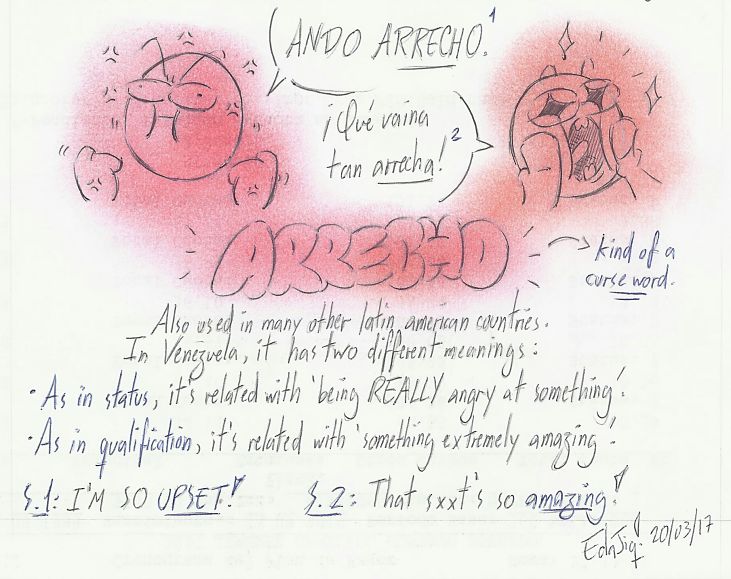 ANDO ARRECHO.¹
¡Qué vaina
tan arrecha!²
ARRECHO
kind of a
curse word.
Also used in many other latin american countries.
In Venezuela, it has two different meanings:
· As in status, it's related with 'being REALLY angry at something'.
· As in qualification, it's related with 'something extremely amazing'.
S.1: I'M SO UPSET!
S.2: That sxxt's so amazing!
20/03/17